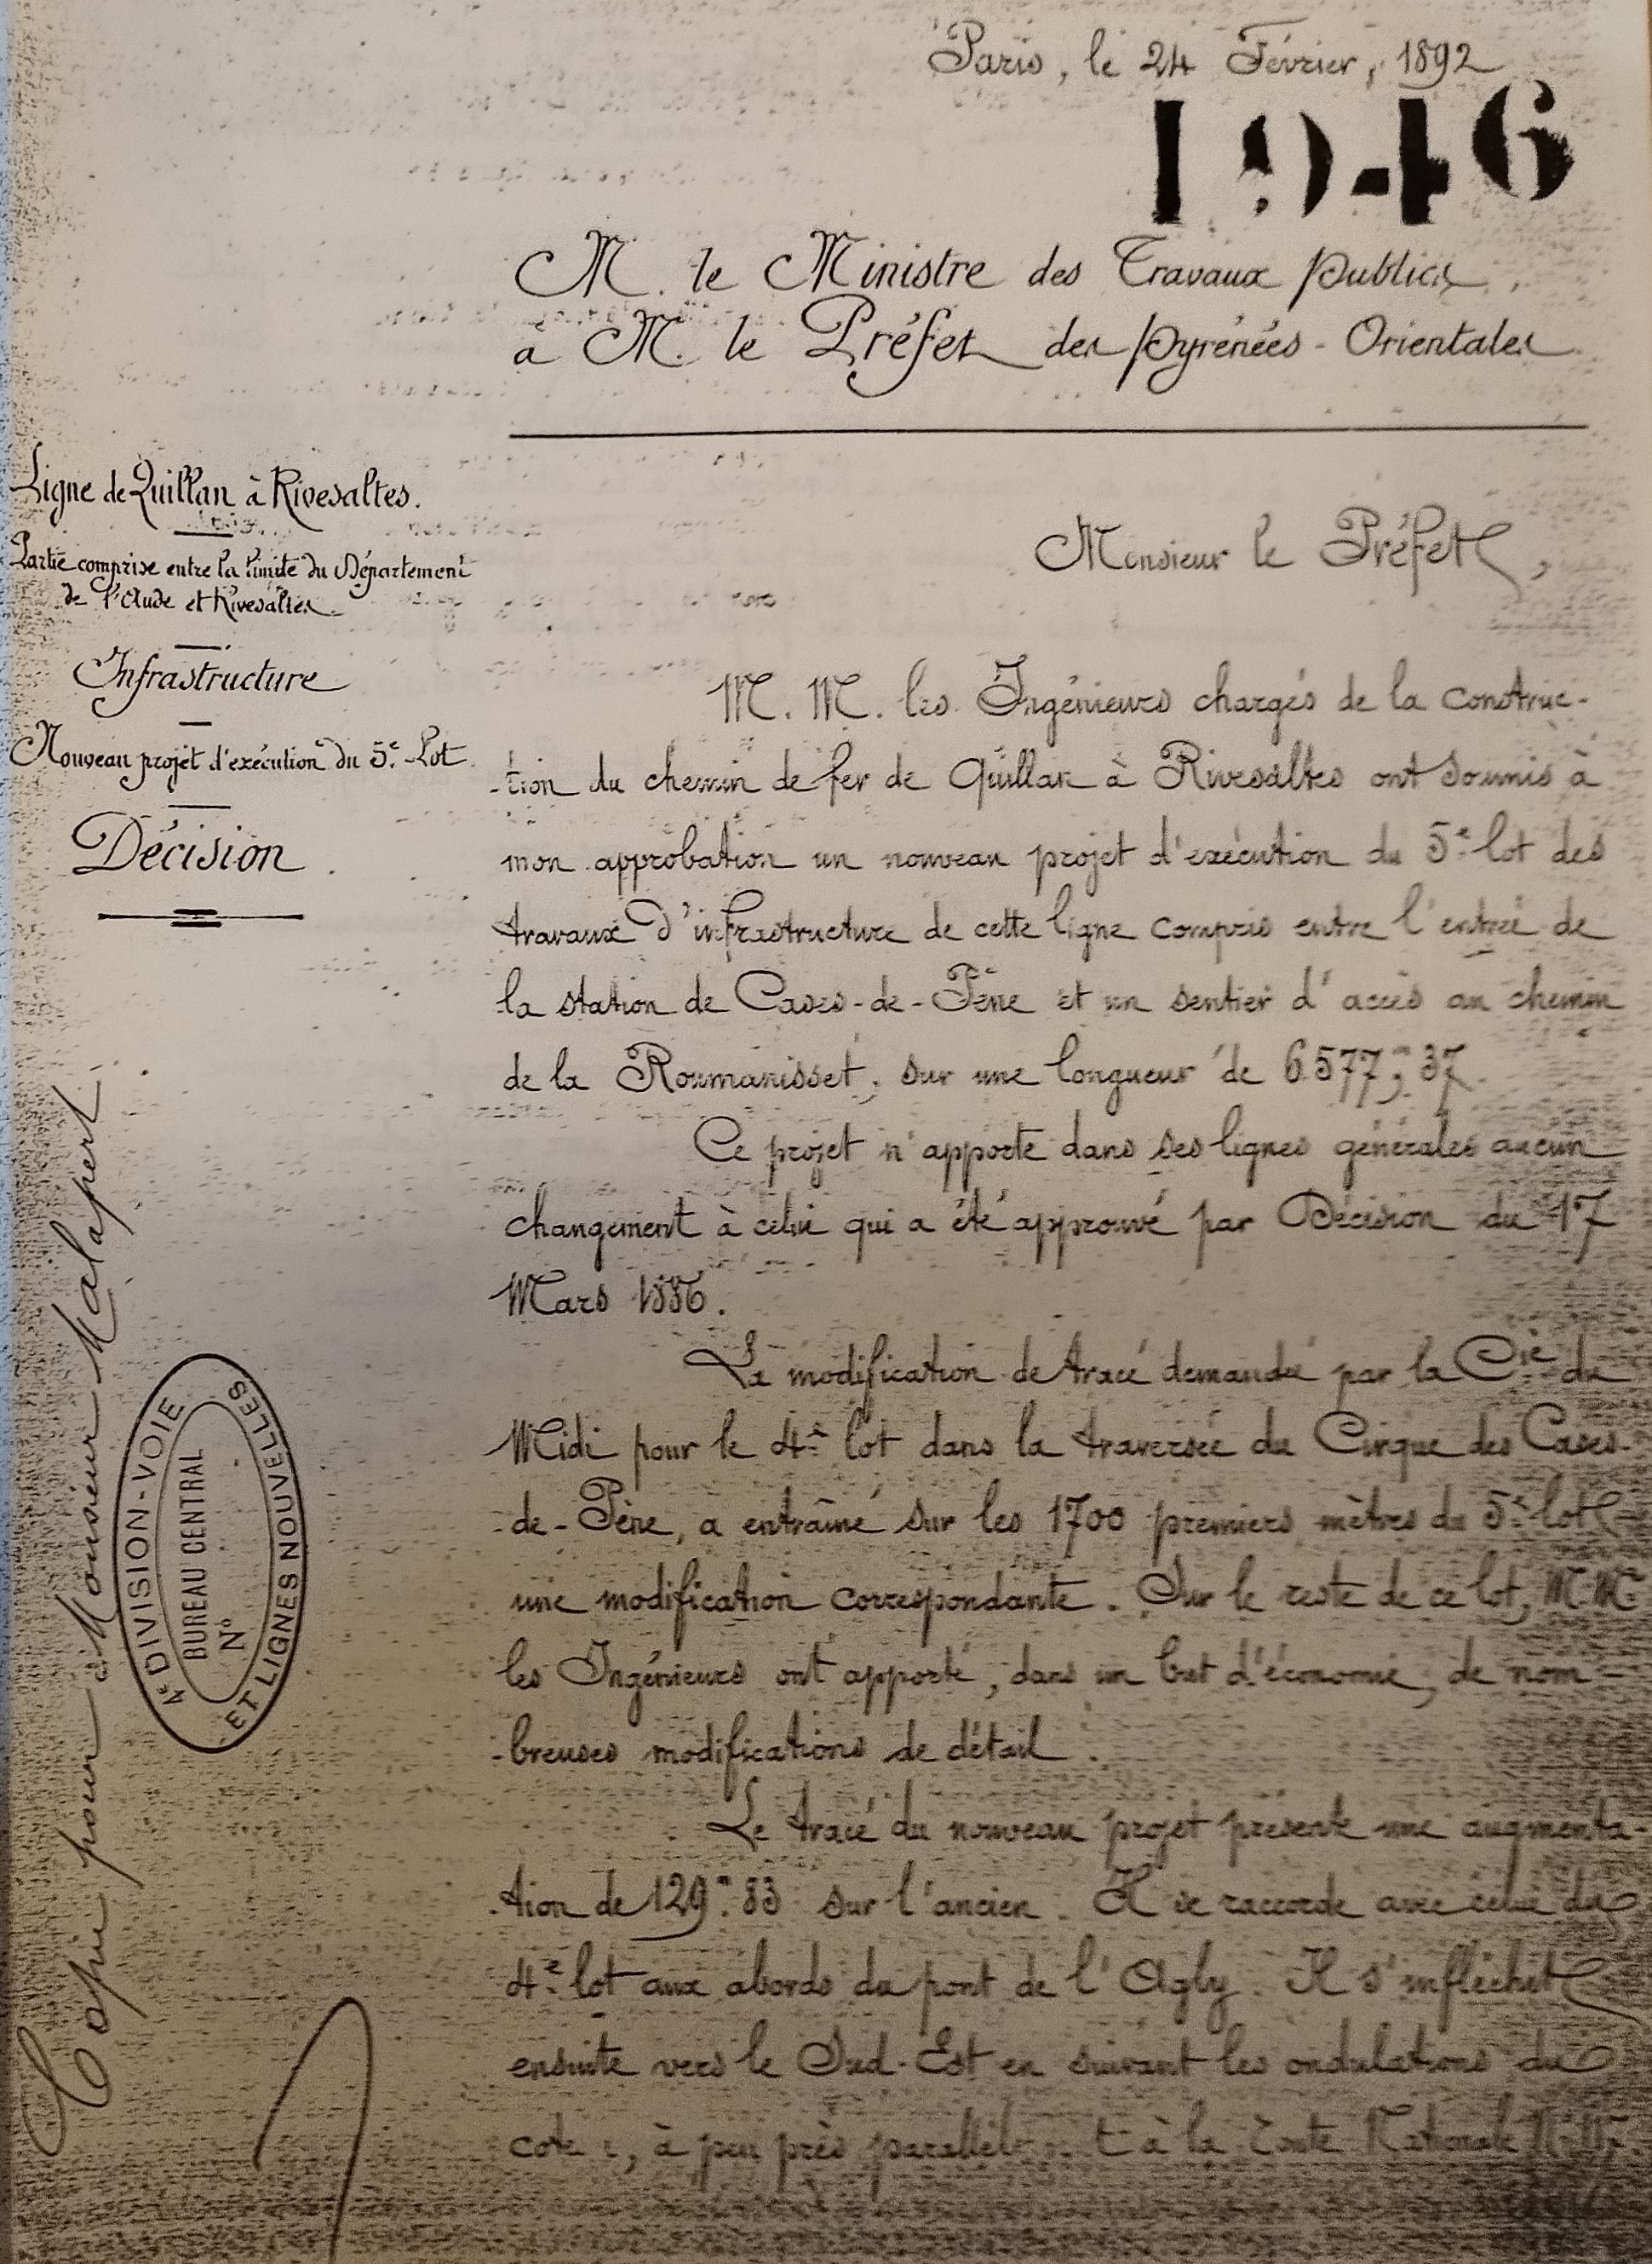 Paris, le 24 Février, 1892
1946
M. le Ministre des Travaux publics,
à M. le Préfet des Pyrénées-Orientales
Ligne de Quillan à Rivesaltes.
Partie comprise entre la limite du Département
de l'Aude et Rivesaltes.
Infrastructure
Nouveau projet d'exécution du 5e Lot.
Décision.
Monsieur le Préfet,
M. M. les Ingénieurs chargés de la construc-
-tion du chemin de fer de Quillan à Rivesaltes ont soumis à
mon approbation un nouveau projet d'exécution du 5e lot des
travaux d'infrastructure de cette ligne compris entre l'entrée de
la station de Cases-de-Pène et un sentier d'accès au chemin
de la Roumanisset, sur une longueur de 6.577,m37.
Ce projet n'apporte dans ses lignes générales aucun
changement à celui qui a été approuvé par Décision du 17
Mars 1886.
La modification de tracé demandée par la Cie du
Midi pour le 4e lot dans la traversée du Cirque des Cases-
-de-Pène, a entraîné sur les 1700 premiers mètres du 5e lot
une modification correspondante. Sur le reste de ce lot, M.M.
les Ingénieurs ont apporté, dans un but d'économie, de nom-
-breuses modifications de détail.
Le tracé du nouveau projet présente une augmenta-
-tion de 129m.83 sur l'ancien. Il se raccorde avec celui du
4e lot aux abords du pont de l'Agly. Il s'infléchit
ensuite vers le Sud-Est en suivant les ondulations du
à peu près à la route Nationale
Copie pour Monsieur Malapert
4e DIVISION-VOIE
ET LIGNES NOUVELLES
BUREAU CENTRAL
No